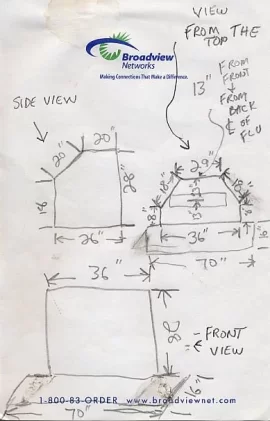 VIEW
FROM THE
TOP
Broadview
Networks
Making Connections That Make a Difference.
13"
FROM
FRONT
FROM
BACK
℄ OF
FLU
SIDE VIEW
20"
20"
28"
18
26"
29"
18"
18"
13"
18"
18
36"
70"
36"
28"
- FRONT
VIEW
16"
1-800-83-ORDER www.broadviewnet.com
70"